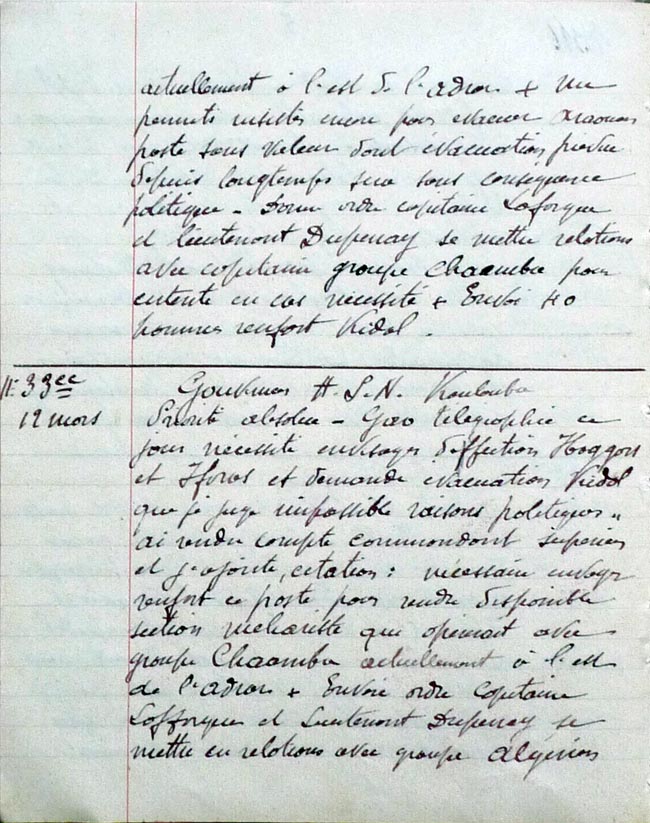 actuellement à l'est de l'adrar + Me
permets insister encore pour évacuer Araouan
poste sans valeur dont évacuation prévue
depuis longtemps sera sans conséquence
politique - Donne ordre capitaine Lafforgue
et lieutenant Dupenay se mettre relations
avec capitaine groupe Chaamba pour
entente en cas nécessité + Envoi 40
hommes renfort Kidal.
N: 33cc
12 mars
Gouverneur H.S.N. Koulouba
Priorité absolue - Gao télégraphie ce
jour nécessité envisager défection Hoggars
et Iforas et demande évacuation Kidal
que je juge impossible raisons politiques..
ai rendu compte commandant supérieur
et j'ajoute, citation: nécessaire envoyer
renfort ce poste pour rendre disponible
section méhariste qui opérait avec
groupe Chaamba actuellement à l'est
de l'adrar + Envoie ordre Capitaine
Lafforgue et Lieutenant Dupenay se
mettre en relations avec groupe algérien